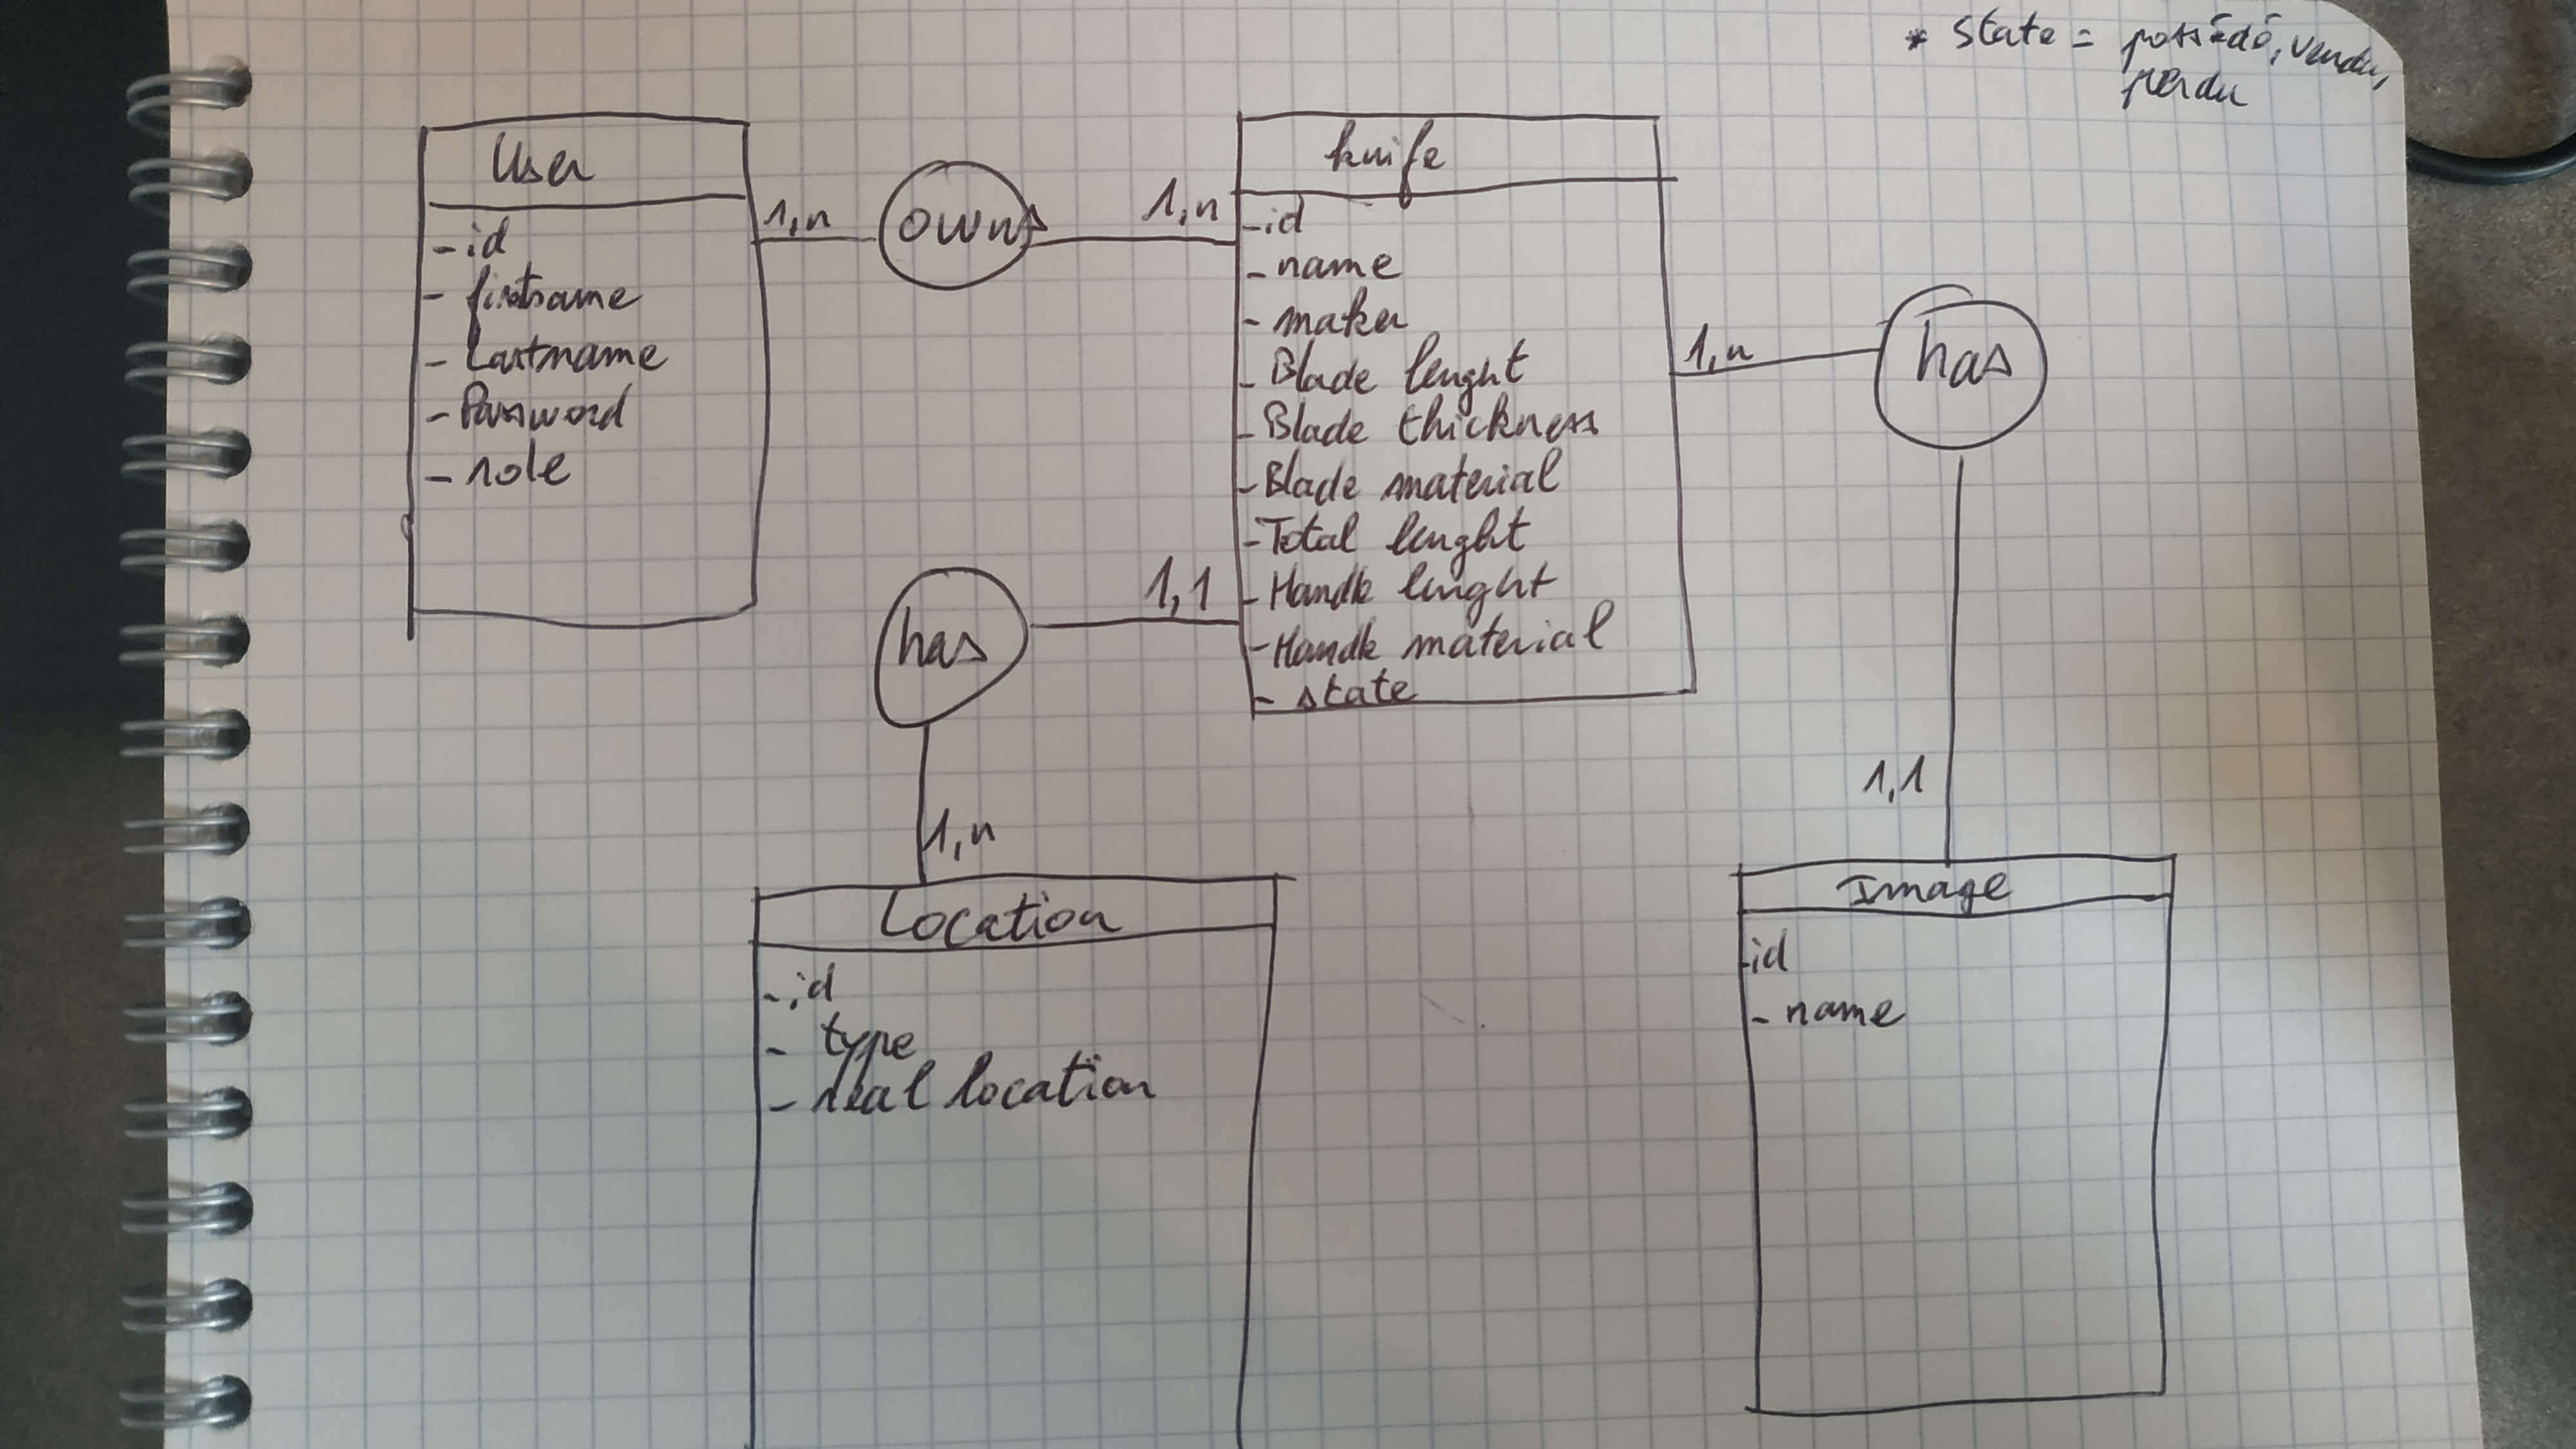 * State = possédé, vendu,
perdu
User
- id
- firstname
- Lastname
- Password
- role
1,n
owns
1,n
knife
- id
- name
- maker
- Blade lenght
- Blade thickness
- Blade material
- Total lenght
- Handle lenght
- Handle material
- state
1,n
has
1,1
has
1,1
1,n
Location
- id
- type
- real location
Image
- id
- name